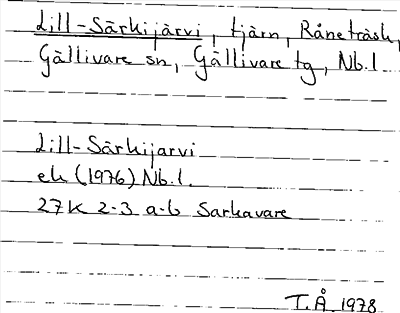 Lill-Särkijärvi, tjärn, Råneträsk,
Gällivare sn, Gällivare tg, Nb.l
Lill-Särkijarvi
ek (1976) Nb.l.
27K 2-3 a-b Sarkavare
T.Å. 1978